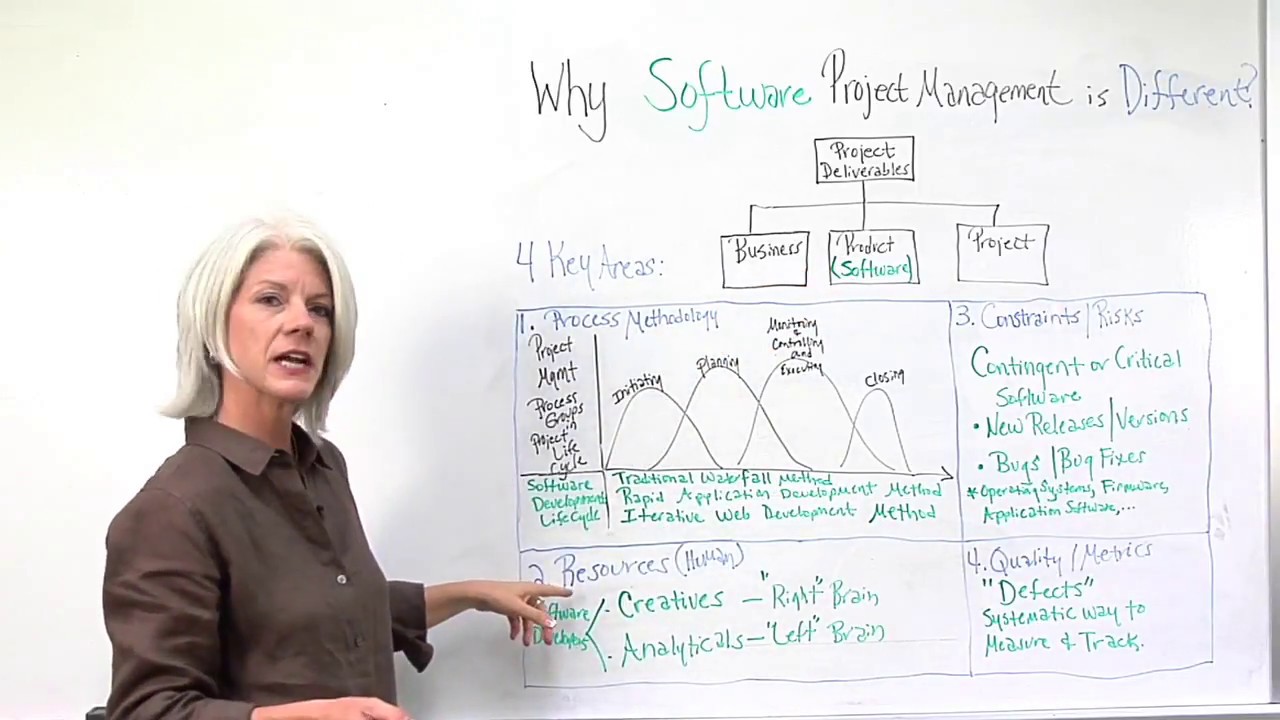 Why Software Project Management is Different?
Project
Deliverables
Business
Product
(Software)
Project
4 Key Areas:
1. Process/Methodology
Project
Mgmt
Process
Groups
in
Project
Life
Cycle
Initiating
Planning
Monitoring
&
Controlling
and
Executing
Closing
Software
Development
LifeCycle
Traditional Waterfall Method
Rapid Application Development Method
Iterative Web Development Method
2. Resources (Human)
Software
Developers
· Creatives – "Right" Brain
· Analyticals – "Left" Brain
3. Constraints/Risks
Contingent or Critical
Software
• New Releases/Versions
• Bugs/Bug Fixes
* Operating Systems, Firmware,
Application Software,...
4. Quality/Metrics
"Defects"
Systematic way to
Measure & Track.